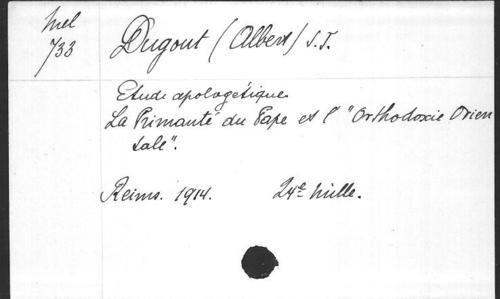 Mel
733
Dugout (Albert) S.J.
Etude apologétique.
La Primauté du Pape et l' "Orthodoxie Orien
tale".
Reims. 1914. 24e mille.